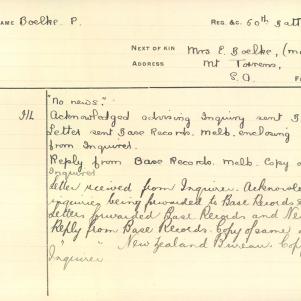 NAME Boelke. P. REG. &C. 50th Batt
NEXT OF KIN Mrs E. Boelke, (mo
ADDRESS Mt Torrens,
S.A.
"No news."
Acknowledged advising Inquiry sent B
Letter sent Base Records. Melb. enclosing
from Inquirer.
Reply from Base Records. Melb. Copy o
Inquirer
Letter received from Inquirer. Acknowle
inquiries being forwarded to Base Records &
Letters forwarded Base Records and New
Reply from Base Records. Copy of same
" " New Zealand Bureau. Cop
Inquirer